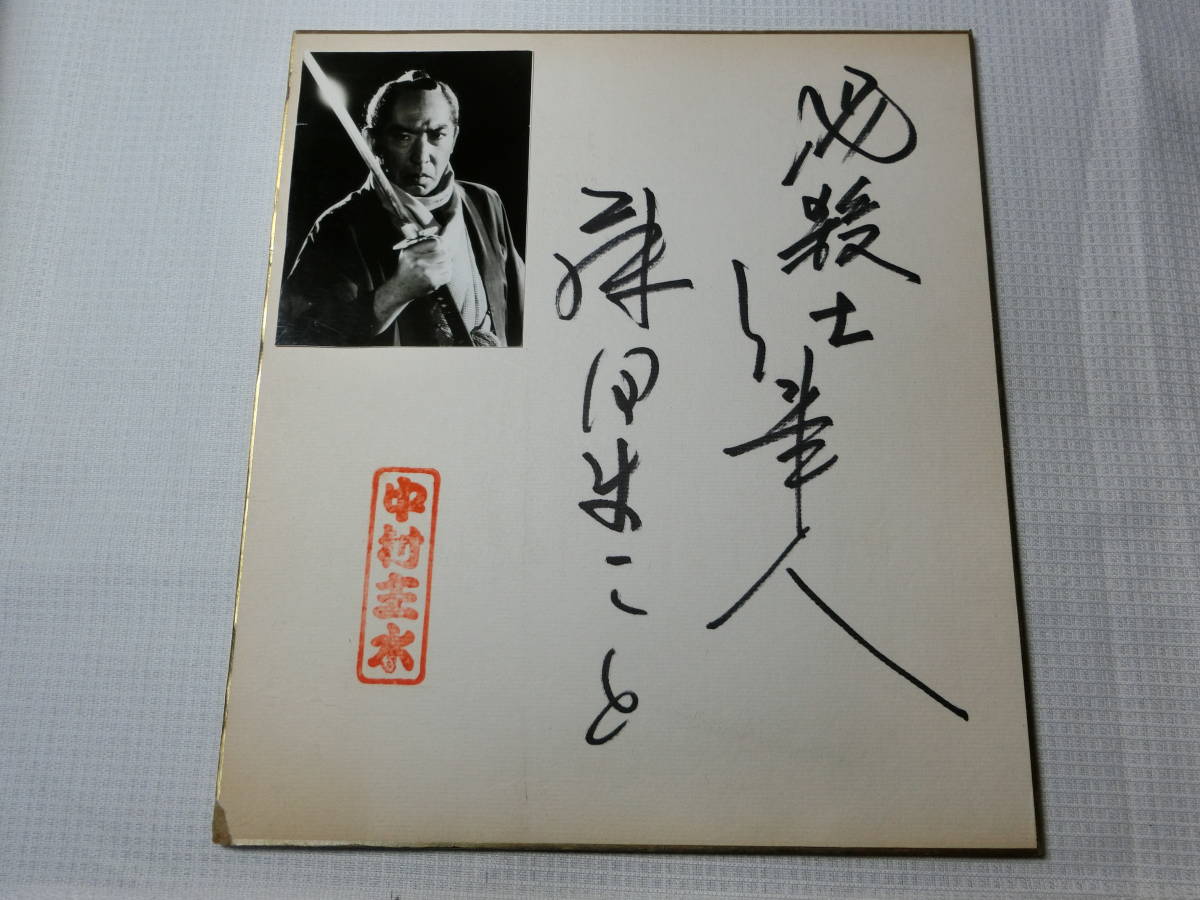 必殺仕事人
藤田まこと
中村主水